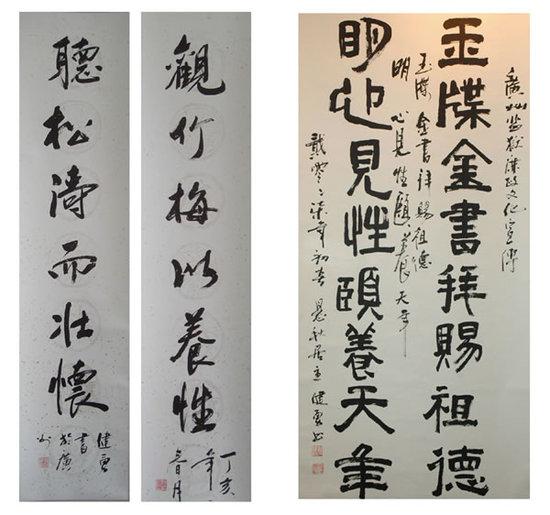 觀竹梅以養性
丁亥
年
春月
聽松濤而壯懷
健勇
書
於廣
州
廣州文化宣傳
玉牒金書拜賜祖德
玉牒金書拜賜祖德
明心見性頤養天年
明心見性頤養天年
貳零零柒年初春居主健勇書